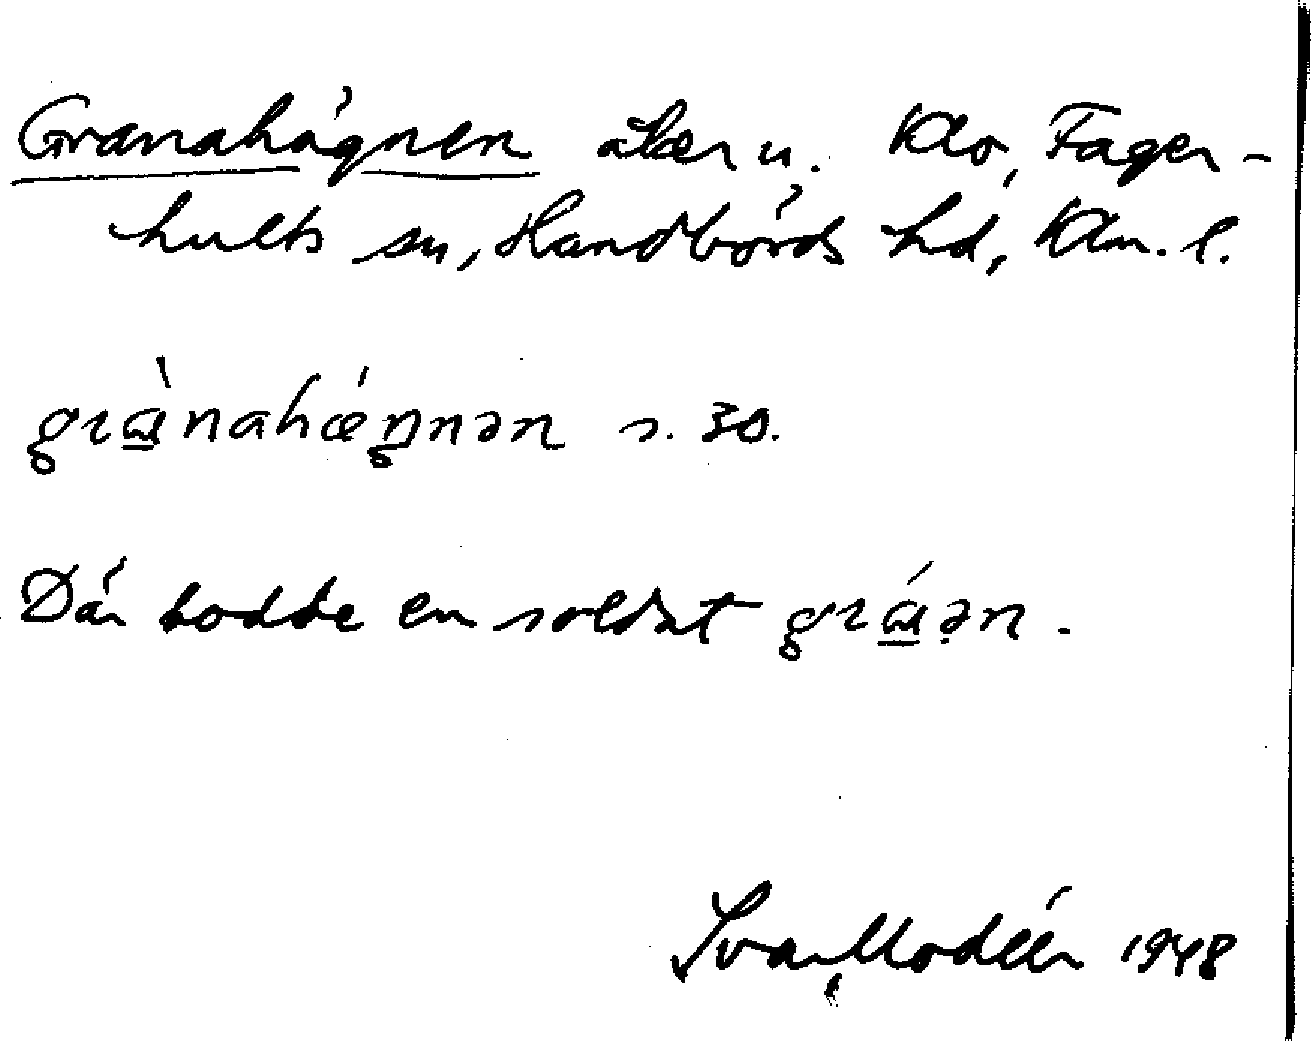 Granahägnen åker u. Klo, Fager-
hults sn, Handbörds hd, Klm. l.
grànahǽŋnən s. 30.
Där bodde en soldat gráən.
Ivar Modéer 1948